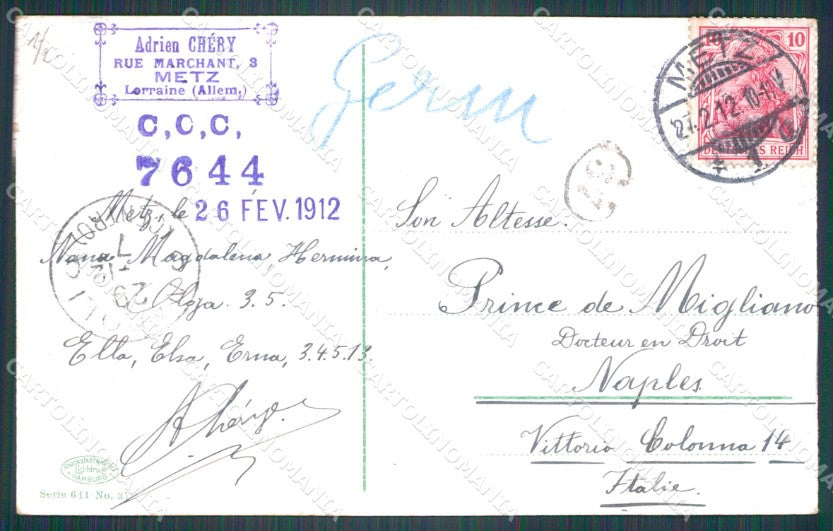 1/2
Adrien CHÉRY
RUE MARCHANT, 3
METZ
Lorraine (Allem.)
C.C.C.
7644
Metz, le 26 FÉV. 1912
Nana Magdalena Hermina,
Olga. 3.5.
Ella, Elsa, Erna, 3.4.5.13.
A Chéry
HAMBURG
Serie 641-No. 37
Germ
METZ
27.2.12. 10-11V
* 1 c
10
DEUTSCHES REICH
Son Altesse.
Prince de Migliano
Docteur en Droit
Naples
Vittorio Colonna 14
Italie.
CARTOLINOMANIA